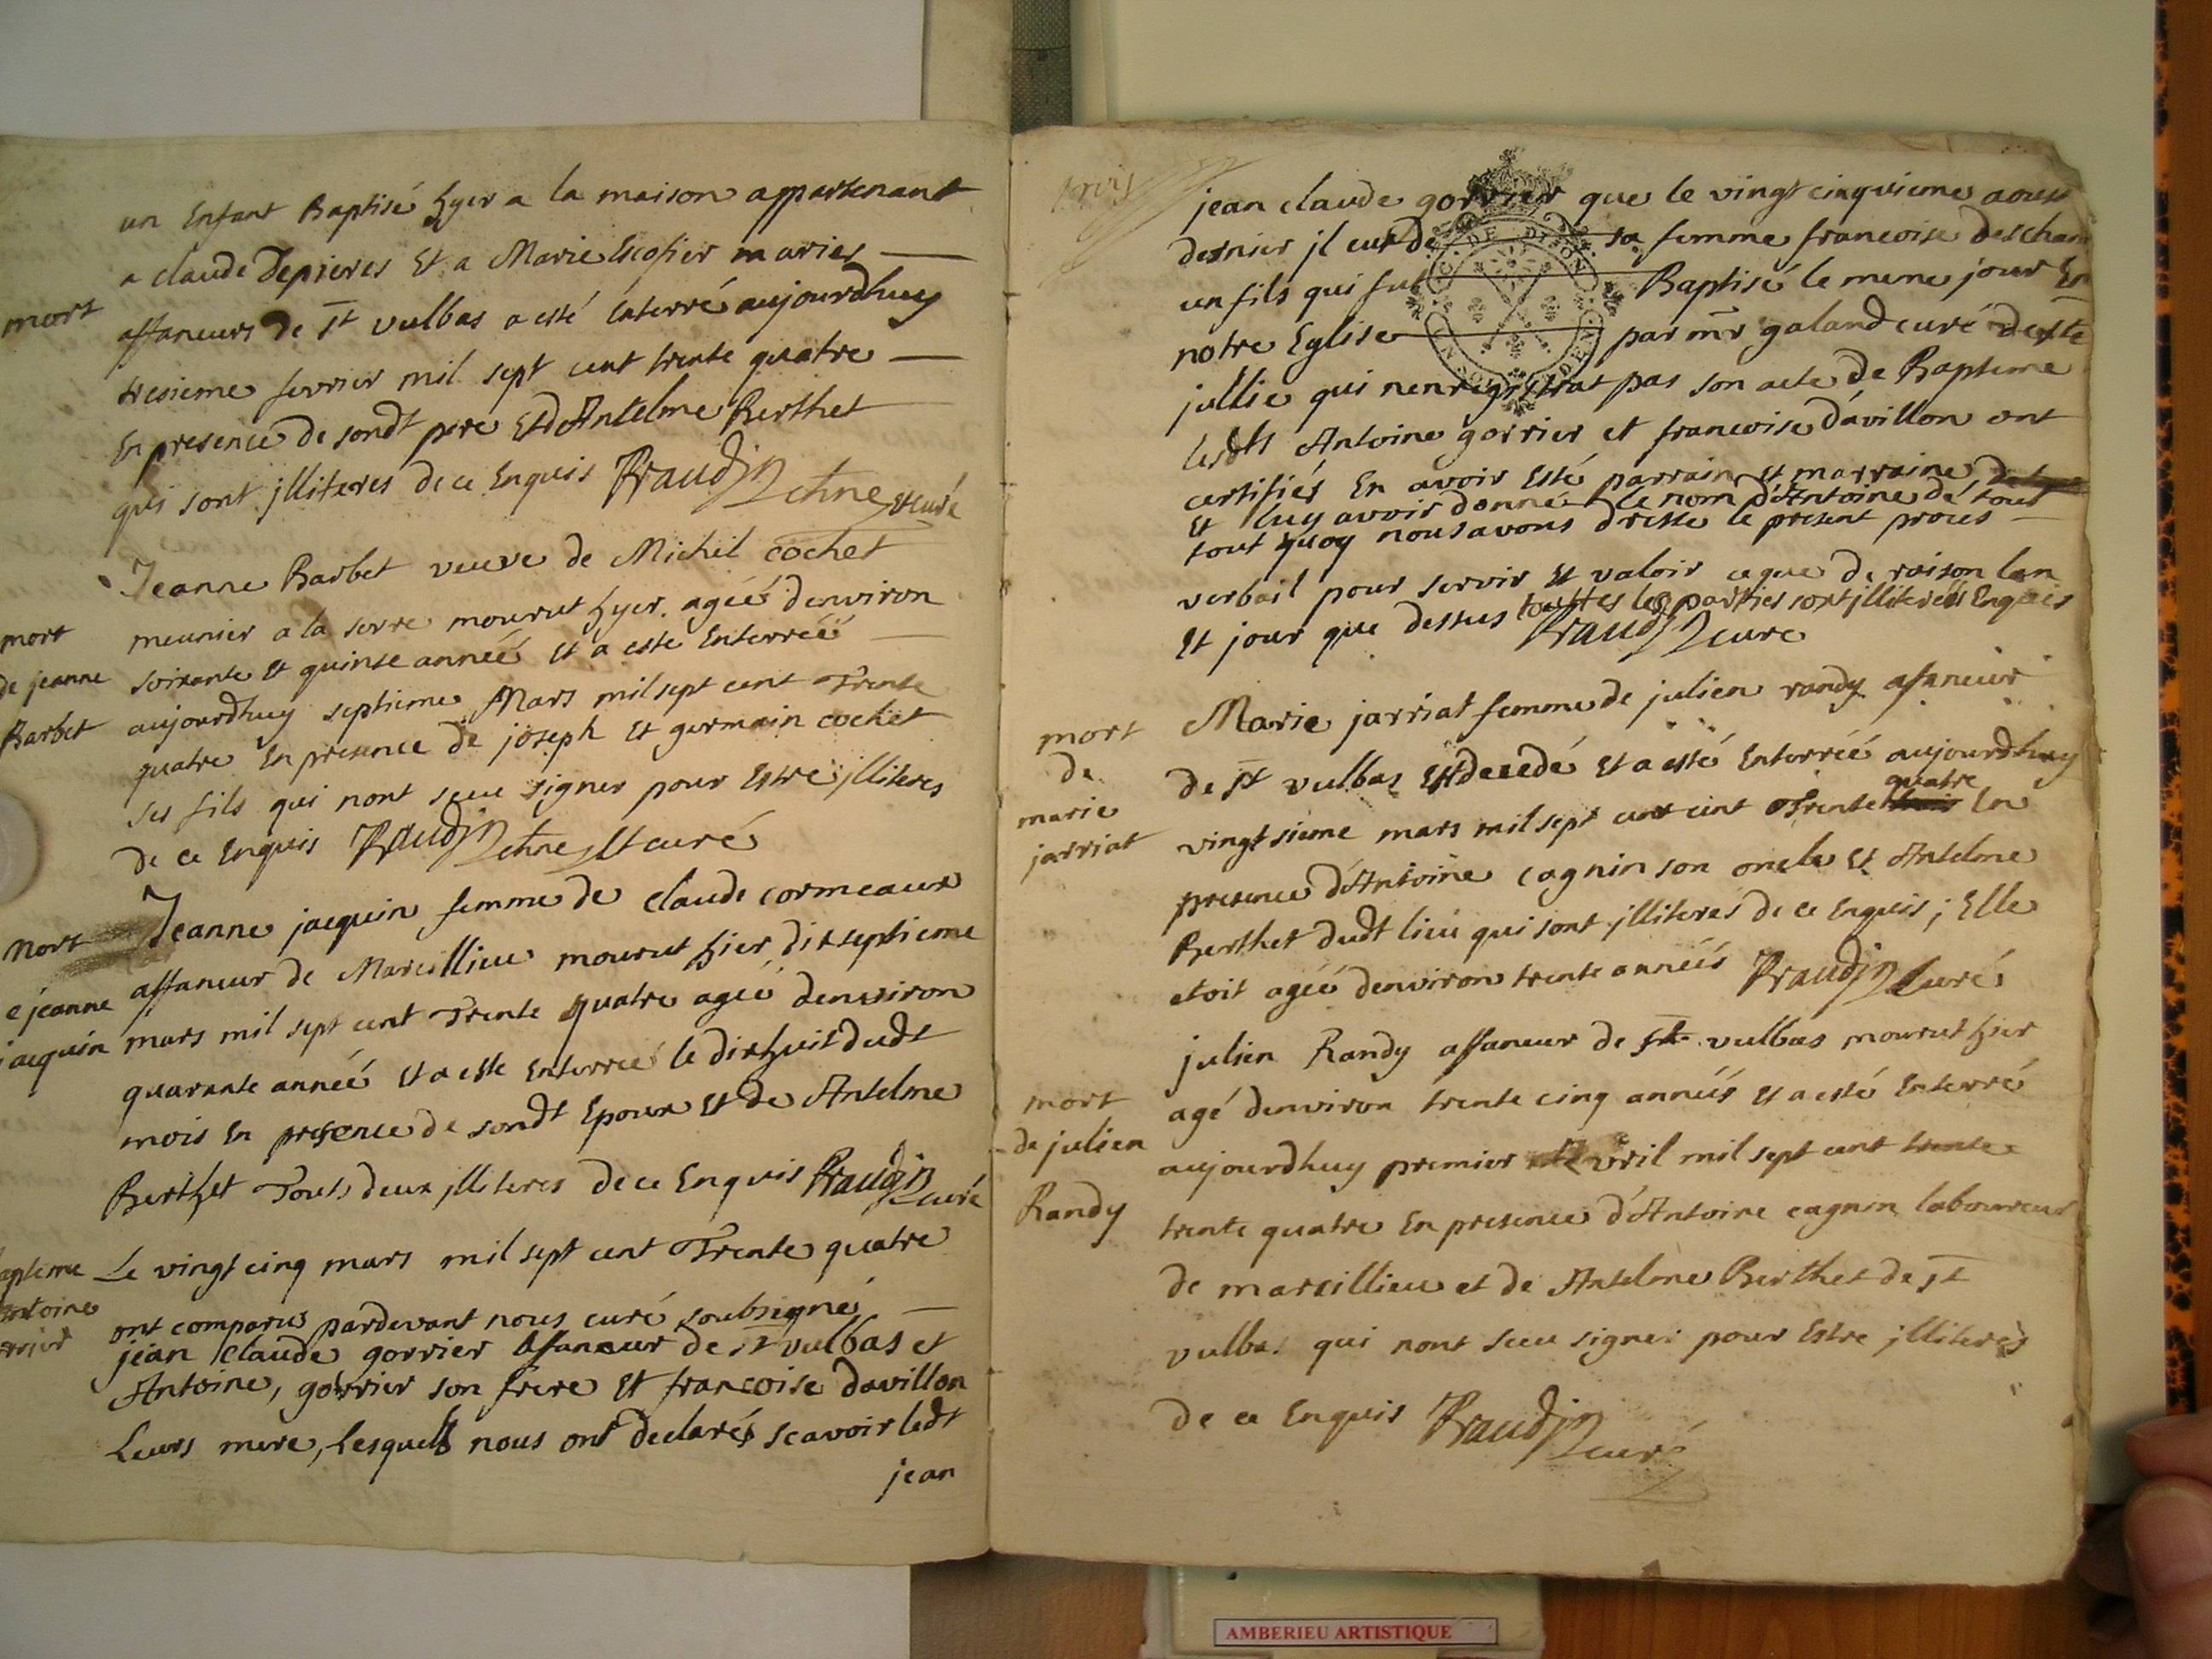 un Enfant Baptisé hyer a la maison appartenant
a claude Depieres Et a Marie Escofier maries
mort
affaneurs de St vulbas a esté enterré aujourdhuy
tresieme fevrier mil sept cent trente quatre
En presence de sondt pere Et d'Antelme Berthet
qui sont jlliteres de ce Enquis Braudin chne et curé
Jeanne Barbet veuve de Michil cochet
mort
de jeanne
Barbet
meunier a la serre mourut hyer agéé denviron
soixante et quinse annéé et a esté Enterréé
aujourdhuy septieme Mars mil sept cent Trente
quatre En presence de joseph et germain cochet
ses fils qui nont sceu signer pour Estre jlliteres
de ce Enquis Braudin chne et curé
mort
e jeanne
jacquin
Jeanne jacquin femme de claude cormeaux
affaneur de Marcillieu mourut hier dixseptieme
mars mil sept cent Trente quatre agéé denviron
quarante annéé et a este enterreé le dixhuit dudt
mois En presence de sondt Epoux et de Antelme
Berthet Touts deux jlliteres de ce Enquis Braudin curé
Le vingt cinq mars mil sept cent Trente quatre
ont comparus pardevant nous curé soubsigné
jean claude gorrier affaneur de St vulbas et
Antoine, gorrier son frere et francoise davillon
Leurs mere, Lesquels nous ont declarés scavoir ledt
jean
jean claude gorrier que le vingt cinquieme aoust
dernier jl eut de sa femme francoise
un fils qui fut Baptisé le meme jour En
notre Eglise par mr galand curé de ste
jullie qui nenregistrat pas son acte de Bapteme
lesdts Antoine gorrier et francoise davillon ont
certifiés En avoir Esté parrain et marraine
et luy avoir donné le nom d'Antoine dé tout
tout quoy nous avons dresse le present proces
verbail pour servir et valoir ce que de raison lan
et jour que dessus touttes les parties sont jlliterés Enquis
Braudin curé
mort
de
marie
jarriat
Marie jarriat femme de julien randy afaneur
de St vulbas Est decedé et a esté Enterréé aujourdhuy
vingt sieme mars mil sept cent cent Trente quatre En
presence d'Antoine cagnin son oncle et Antelme
Berthet dudt lieu qui sont jlliterés de ce Enquis; Elle
etoit agéé denviron trente annéés Braudin curé
mort
de julien
Randy
julien Randy affaneur de St vulbas mourut hier
agé denviron trente cinq annéés et a esté Enterré
aujourdhuy premier Avril mil sept cent trente
trente quatre En presence d'Antoine cagnin laboureur
de marcillieu et de Antelme Berthet de St
vulbas qui nont sceu signer pour Estre jlliterés
de ce Enquis Braudin curé
AMBERIEU ARTISTIQUE